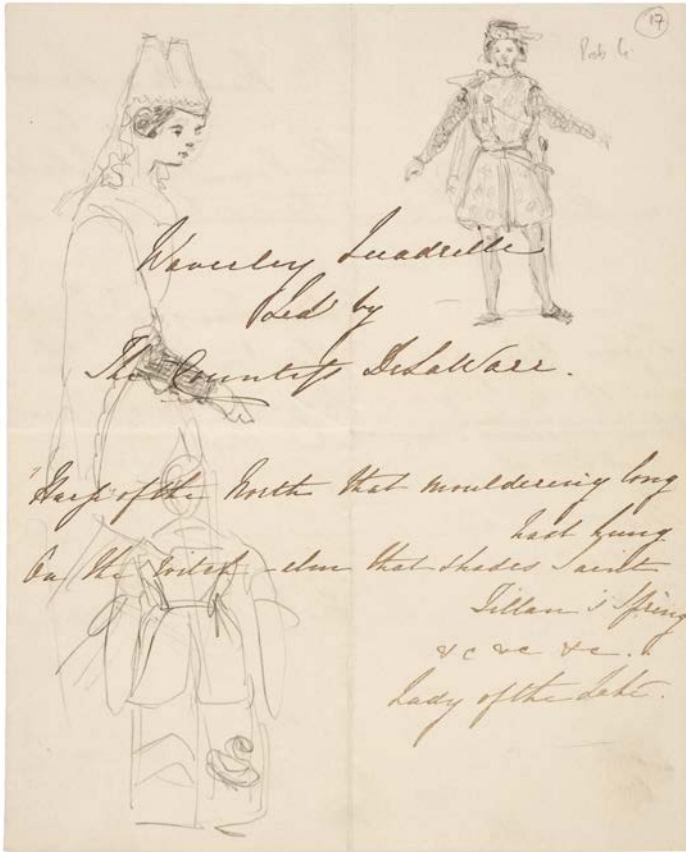 17
Waverley Quadrille
Led by
The Countess DeLaWarr.
"Harp of the North that mouldering long
hast hung
On the witch-elm that shades Saint
Fillan's Spring
&c &c &c.
Lady of the Lake.